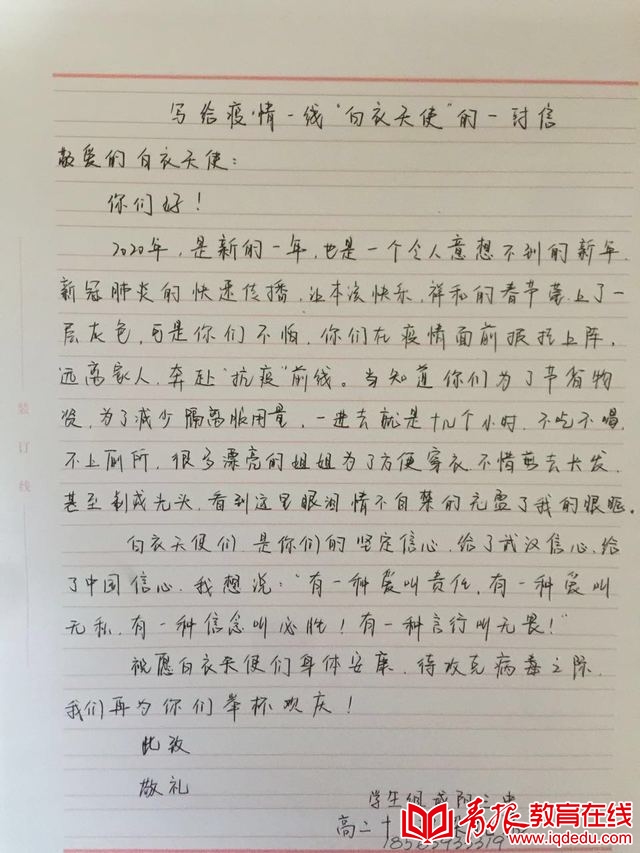 写给疫情一线“白衣天使”的一封信
敬爱的白衣天使：
你们好！
2020年，是新的一年，也是一个令人意想不到的新年，
新冠肺炎的快速传播，让本该快乐，祥和的春节蒙上了一
层灰色，可是你们不怕，你们在疫情面前披挂上阵，
远离家人，奔赴“抗疫”前线。当知道你们为了节省物
资，为了减少隔离服用量，一进去就是十几个小时，不吃不喝，
不上厕所，很多漂亮的姐姐为了方便穿衣，不惜剪去长发，
甚至剃成光头，看到这里眼泪情不自禁的充盈了我的眼眶。
白衣天使们，是你们的坚定信心，给了武汉信心，给
了中国信心，我想说：“有一种爱叫责任，有一种爱叫
无私，有一种信念叫必胜！有一种言行叫无畏！”
祝愿白衣天使们身体安康，待攻克病毒之际，
我们再为你们举杯欢庆！
此致
敬礼
学生
高二十
装订线
青报教育在线
www.iqdedu.com